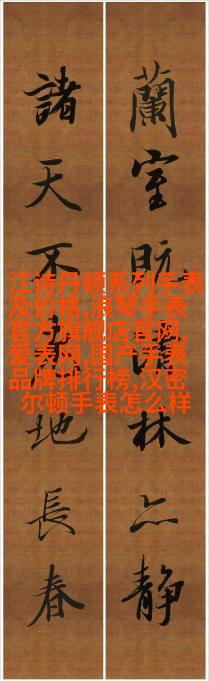 蘭室既林亦静
諸天不地長春
江诗丹顿系列手表
及价格,浪琴手表
官方旗舰店官网,
爱表网,国产手表
品牌排行榜,汉密
尔顿手表怎么样